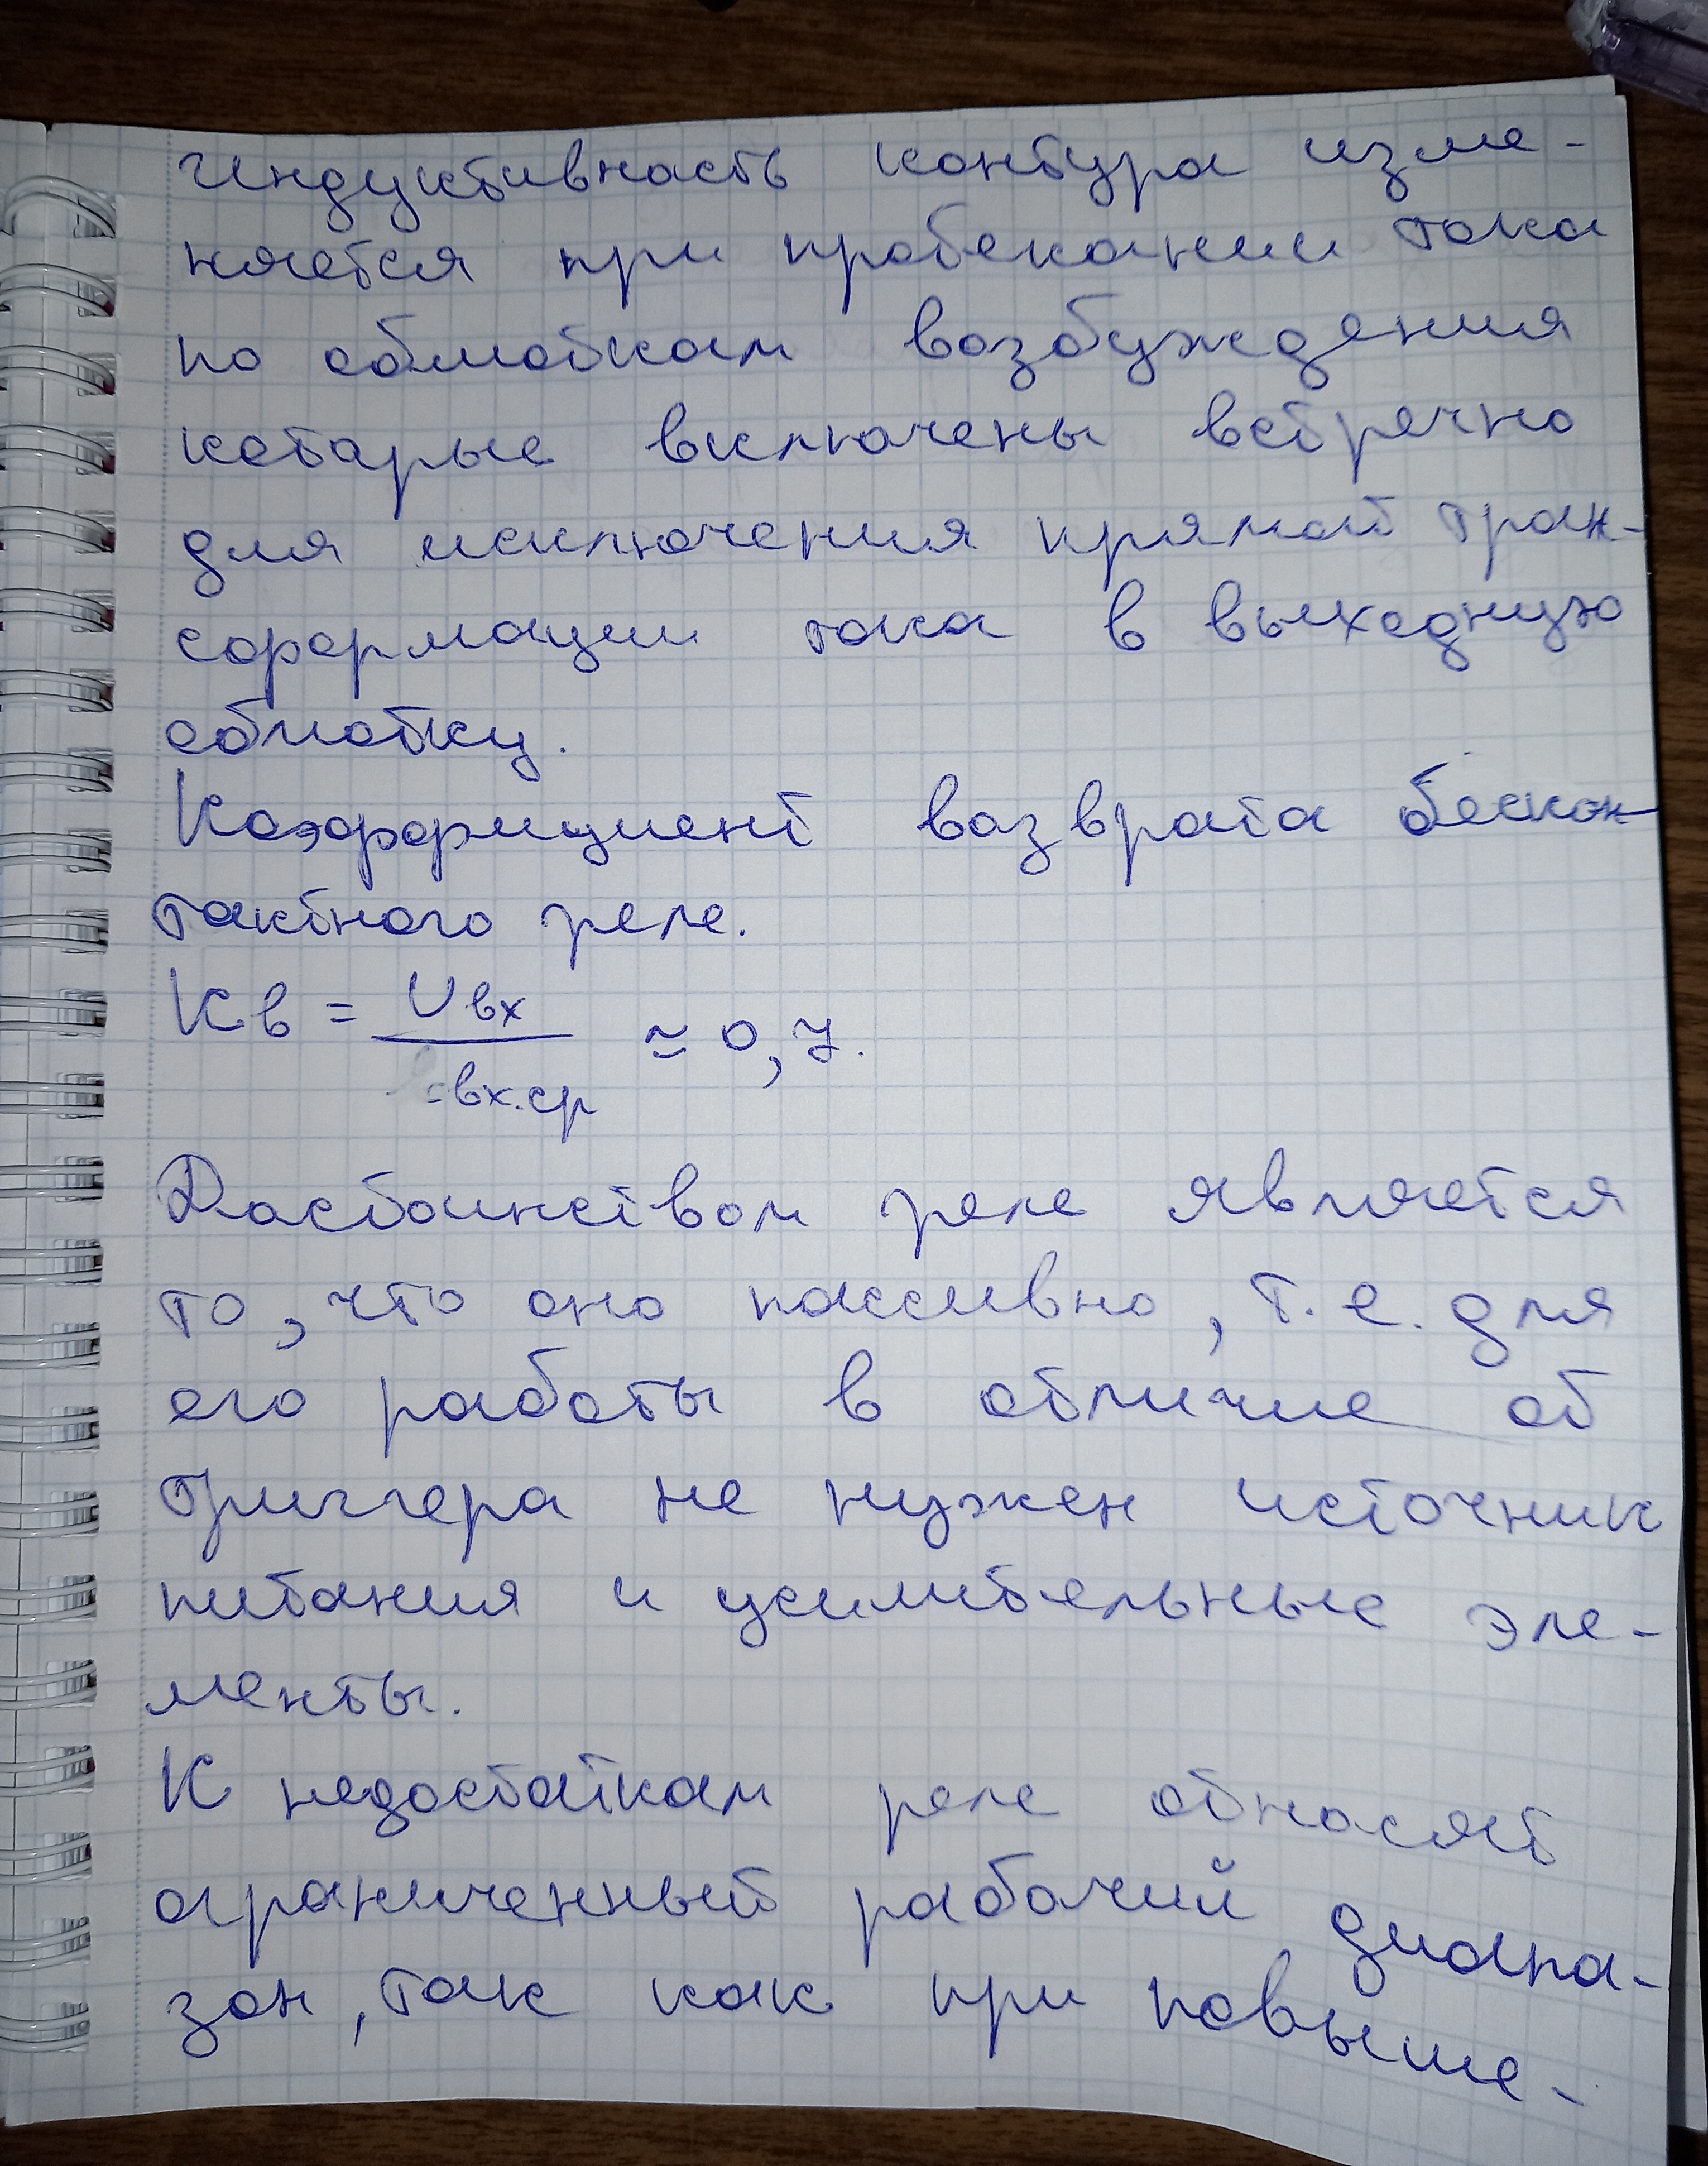 Индуктивность контура изме-
няется при протекании тока
по обмоткам возбуждения
которые включены встречно
для исключения прямой тран-
сформации тока в выходную
обмотку.
Коэффициент возврата бескон-
тактного реле.
Кв = Uвх / вх.ср ≈ 0,7.
Достоинством реле является
то, что оно пассивно, т.е. для
его работы в отличие от
триггера не нужен источник
питания и усилительные эле-
менты.
К недостаткам реле относят
ограниченный рабочий диапа-
зон, так как при повыше-